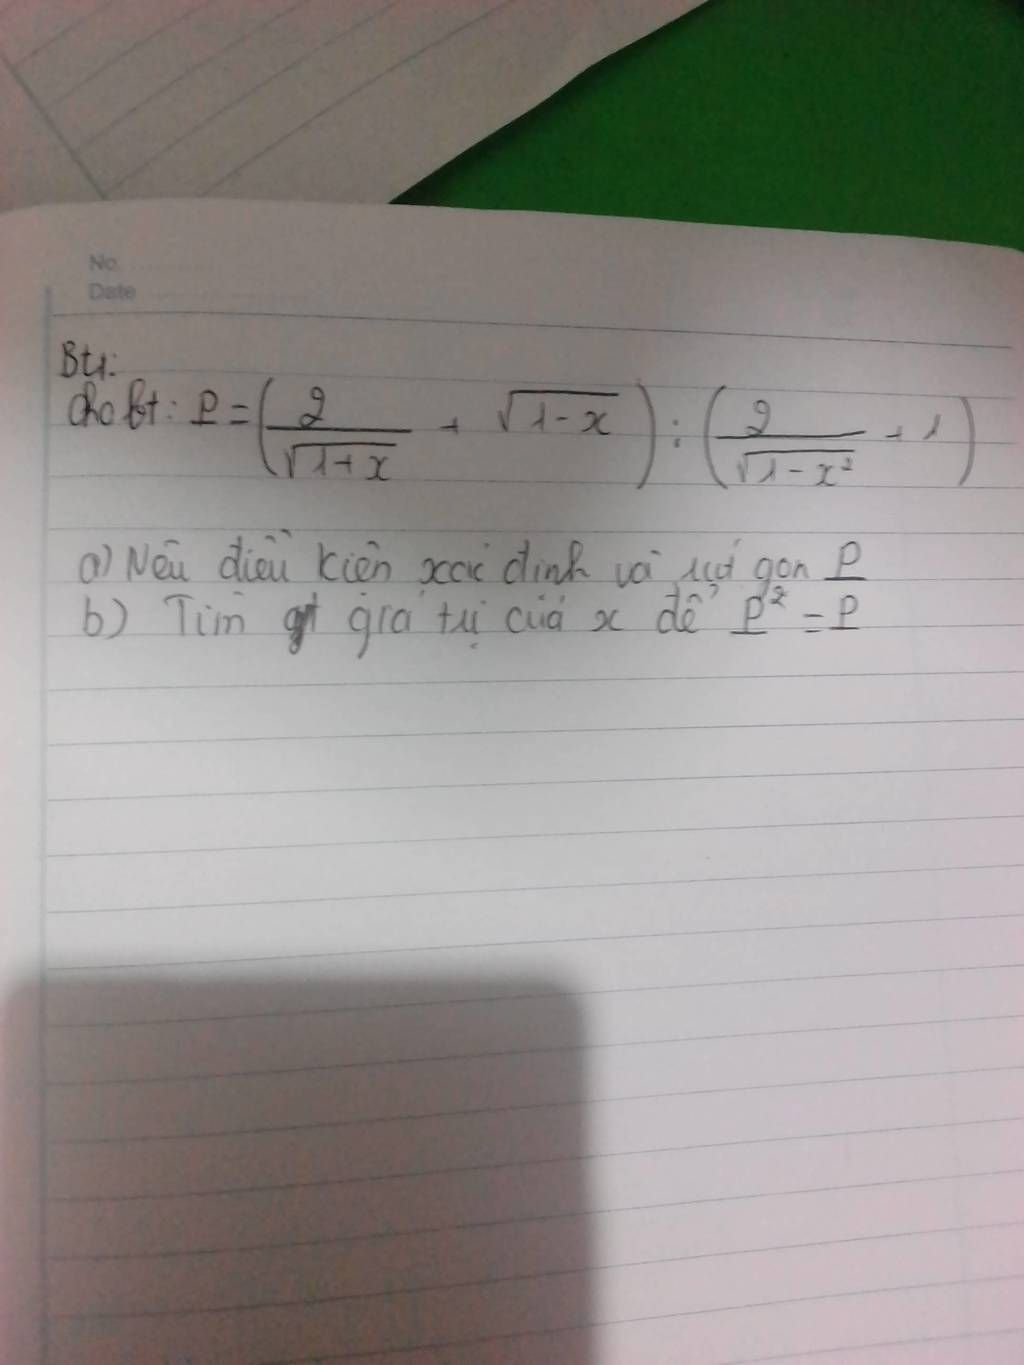 No.
Date
Bt1:
Cho bt: P = ( 2/√(1+x) + √(1-x) ) : ( 2/√(1-x²) + 1 )
a) Nêu điều kiện xác định và rút gọn P
b) Tìm gt giá trị của x để P² = P